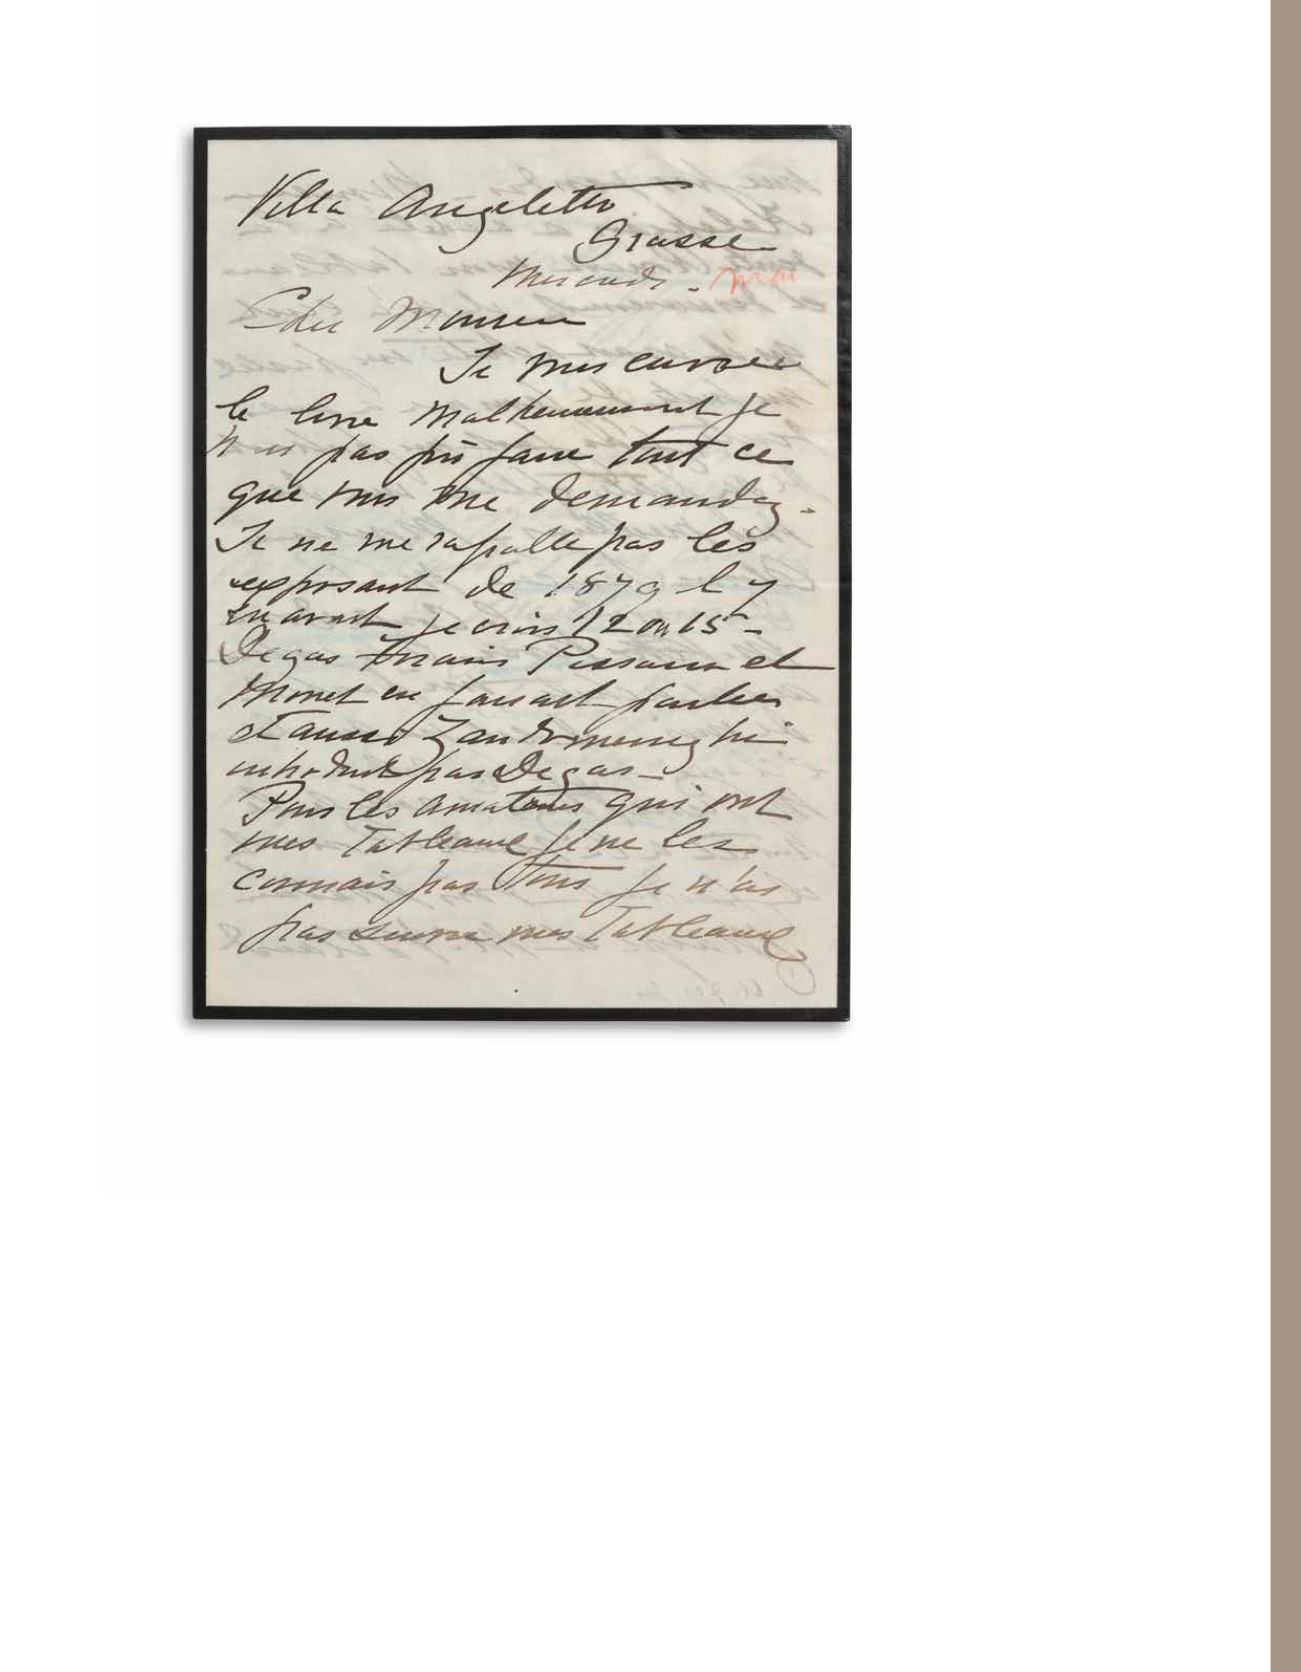 Villa Angeletto
Grasse
Mercredi. mai
Cher Monsieur
Je vous envoie
le livre Malheureusement je
n'ai pas pû faire tout ce
que vous me demandez.
Je ne me rapelle pas les
exposant de 1879 il y
en avait je crois 12 ou 15 -
Degas mais Pissarro et
Monet en faisait parties
et aussi Zandomeneghi
introduit pas Degas -
Pour les amateurs qui ont
mes Tableaux je ne les
connais pas tous je n'ai
pas suivre mes Tableaux